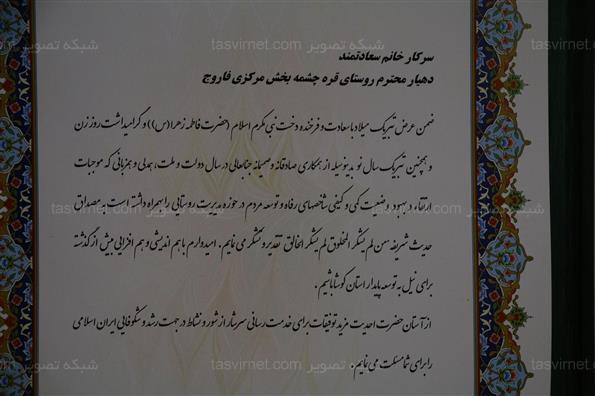 شبکه تصویر tasvirnet.com شبکه تصویر tasvirnet.com
سرکار خانم سعادتمند
دهیار محترم روستای قره چشمه بخش مرکزی فاروج
ضمن عرض تبریک میلاد باسعادت و فرخنده دخت نبی مکرم اسلام (حضرت فاطمه زهرا(س)) و گرامیداشت روز زن
و همچنین تبریک سال نو بدینوسیله از همکاری صادقانه و صمیمانه جنابعالی در سال دولت و ملت، همدلی و همزبانی که موجبات
ارتقاء و بهبود وضعیت کمی و کیفی شاخصهای رفاه و توسعه مردم در حوزه مدیریت روستایی را بهمراه داشته است به مصداق
حدیث شریفه من لم یشکر المخلوق لم یشکر الخالق تقدیر و تشکر می نمایم. امیدوارم با هم اندیشی و هم افزایی بیش از گذشته
برای نیل به توسعه پایدار استان کوشا باشیم.
از آستان حضرت احدیت مزید توفیقات برای خدمت رسانی سرشار از شور و نشاط در جهت رشد و شکوفایی ایران اسلامی
را برای شما مسئلت می نمایم.
شبکه تصویر tasvirnet.com شبکه تصویر tasvirnet.com